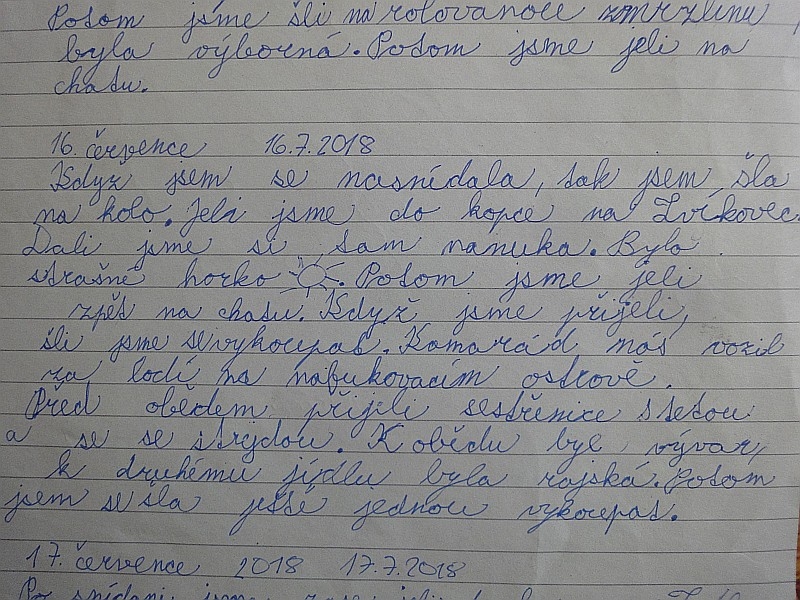 Potom jsme šli na rolovanou zmrzlinu,
byla výborná. Potom jsme jeli na
chatu.
16. července 16.7.2018
Když jsem se nasnídala, tak jsem šla
na kolo. Jeli jsme do kopce na Zvíkovec.
Dali jsme si tam nanuka. Bylo
strašné horko. Potom jsme jeli
zpět na chatu. Když jsme přijeli,
šli jsme se vykoupat. Kamarád nás vozil
za lodí na nafukovacím ostrově.
Před obědem přijeli sestřenice s tetou
a se se strejdou. K obědu byl vývar,
k druhému jídlu byla rajská. Potom
jsem se šla ještě jednou vykoupat.
17. července 2018 17.7.2018
Po snídani jsme